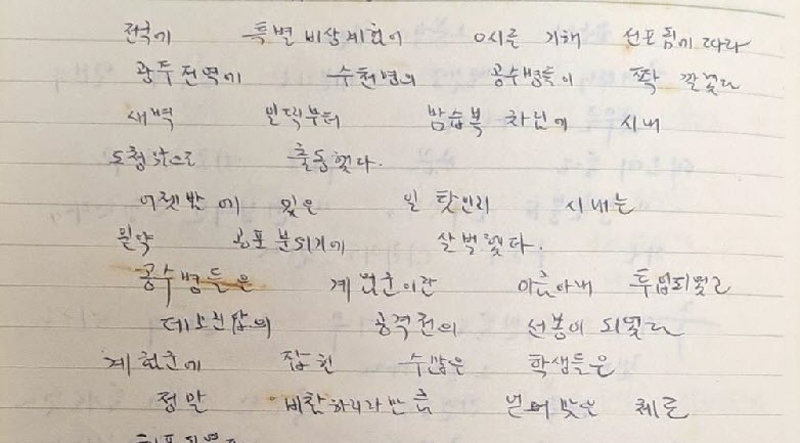 전역에 특별 비상계엄이 0시를 기해 선포됨에 따라
광주전역에 수천명의 공수병들이 쫙 깔렸다
새벽 부터 차림에 시내
도청앞으로 출동했다.
어젯밤에 있은 일 탓인지 시내는
일약 공포 분위기에 살벌했다.
공수병들은 계엄군이란 이름아래 투입되었고
데모진압의 공격전의 선봉이 되었다
계엄군에 잡힌 수많은 학생들은
정말 비참하리라만큼 얻어맞은 채로